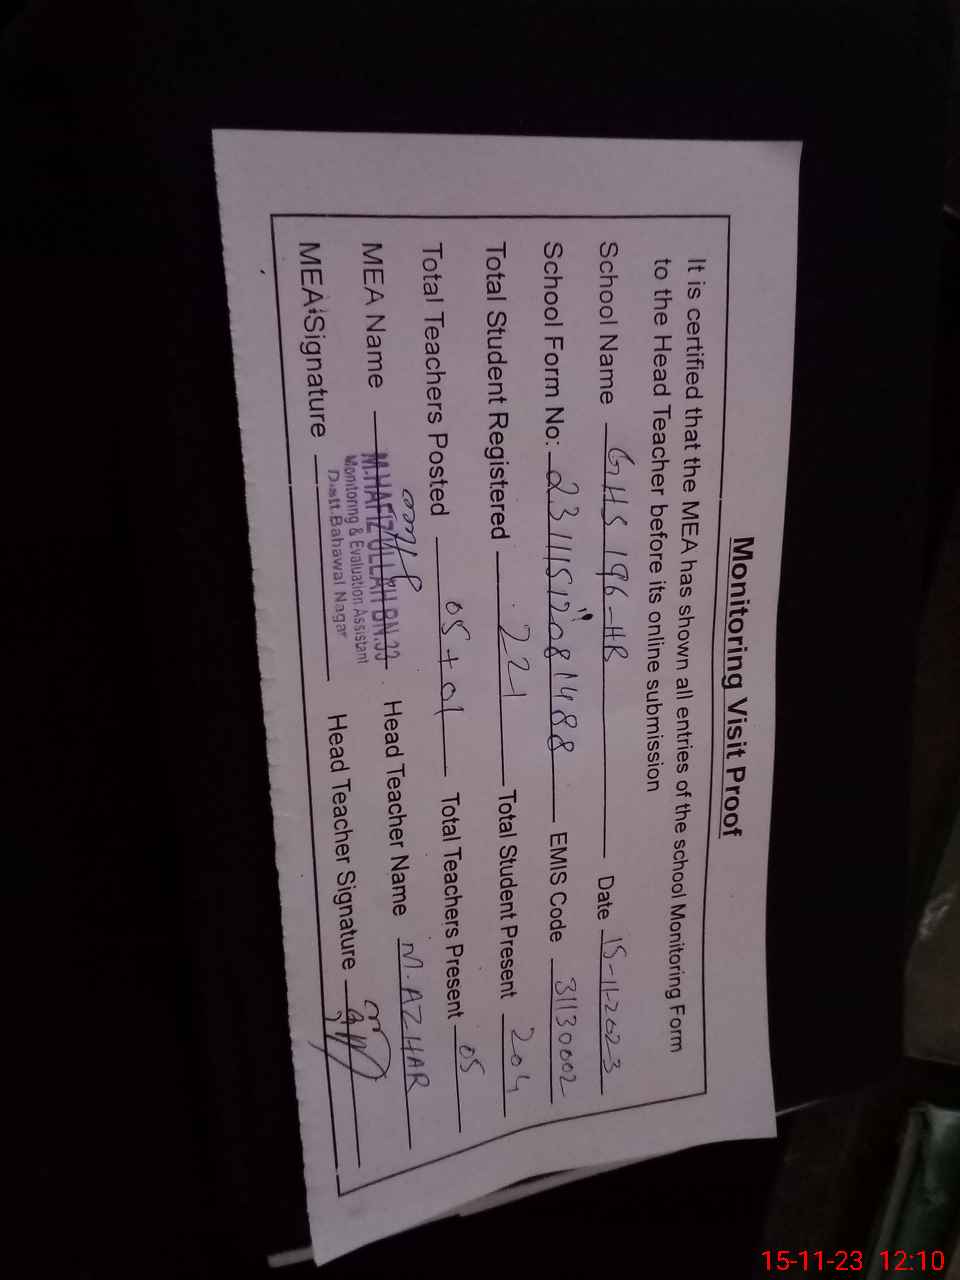 Monitoring Visit Proof
It is certified that the MEA has shown all entries of the school Monitoring Form
to the Head Teacher before its online submission
School Name GHS 196-HR Date 15-11-2023
School Form No: 23111512081488 EMIS Code 31130002
Total Student Registered 221 Total Student Present 204
Total Teachers Posted 05+01 Total Teachers Present 05
MEA Name M.HAFIZ ULLAH BN.33 Head Teacher Name M.AZHAR
Monitoring & Evaluation Assistant
Distt.Bahawal Nagar
MEA Signature Head Teacher Signature
15-11-23 12:10